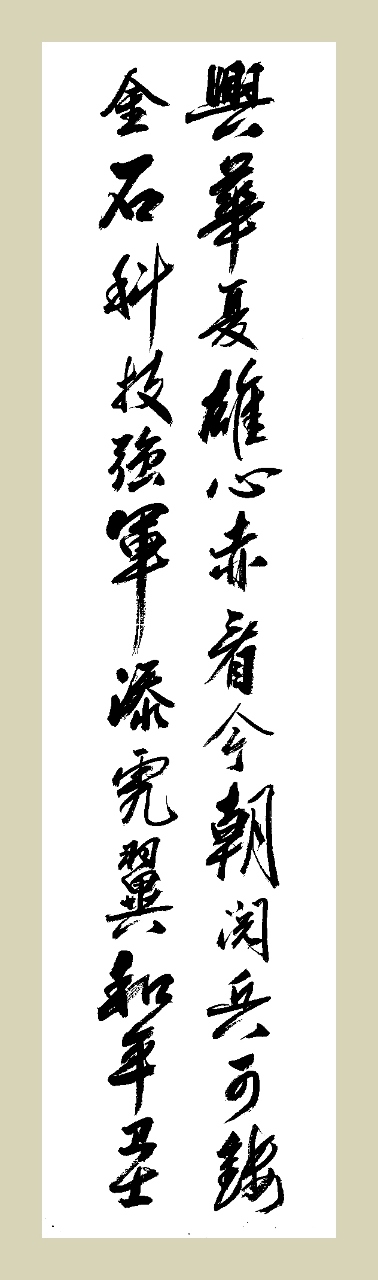 興華夏雄心赤看今朝阅兵可鏤
金石科技強軍添虎翼和平卫士